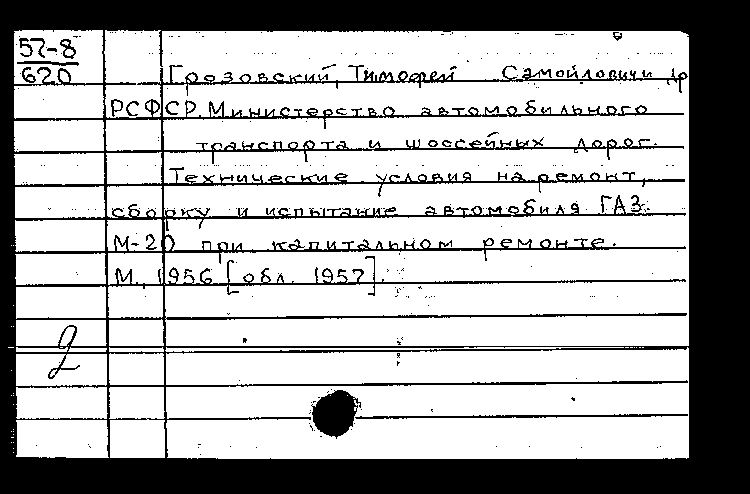 57-8
620
Грозовский, Тимофей Самойлович и др
РСФСР. Министерство автомобильного
транспорта и шоссейных дорог.
Технические условия на ремонт,
сборку и испытание автомобиля ГАЗ.
М-20 при капитальном ремонте.
М., 1956 [обл. 1957].
2